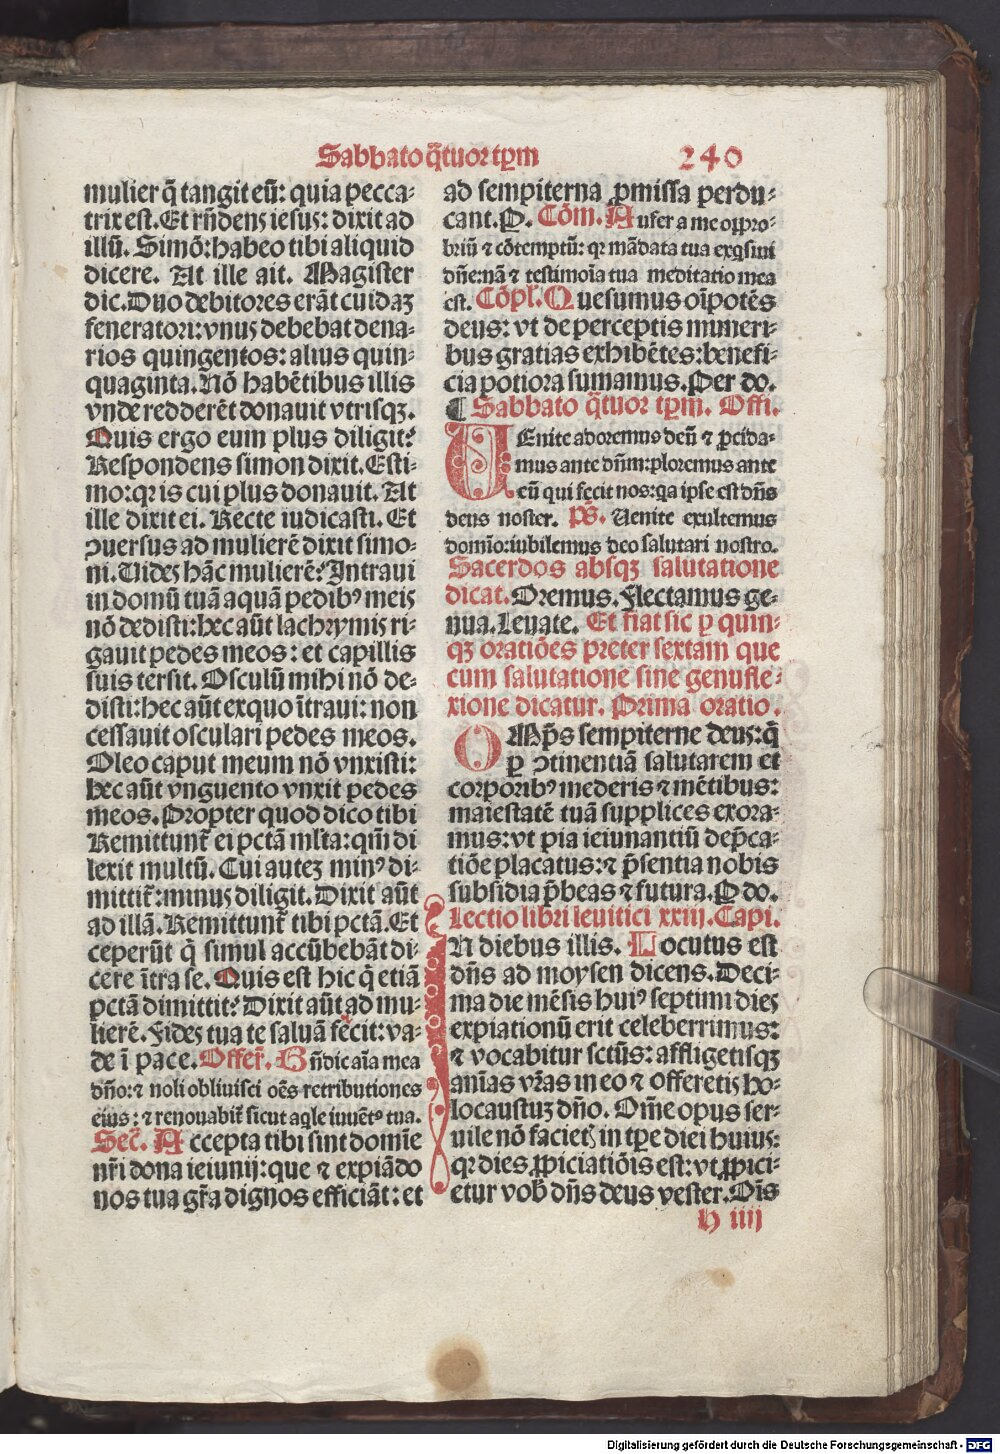 Sabbato q̄tuor tp̄m 240
mulier q̄ tangit eū: quia pecca-
trix est. Et rn̄dens iesus: dixit ad
illū. Simō: habeo tibi aliquid
dicere. At ille ait. Magister
dic. Duo debitores erāt cuidaʒ
feneratori: vnus debebat dena-
rios quingentos: alius quin-
quaginta. Nō habētibus illis
vnde redderēt donauit vtrisqʒ.
Quis ergo eum plus diligit?
Respondens simon dixit. Esti-
mo: qr is cui plus donauit. At
ille dixit ei. Recte iudicasti. Et
ɔuersus ad mulierē dixit simo-
ni. Uides hāc mulierē? Intraui
in domū tuā aquā pedibꝰ meis
nō dedisti: hec aūt lachrymis ri-
gauit pedes meos: et capillis
suis tersit. Osculū mihi nō de-
disti: hec aūt ex quo ītraui: non
cessauit osculari pedes meos.
Oleo caput meum nō vnxisti:
hec aūt vnguento vnxit pedes
meos. Propter quod dico tibi
Remittunt̄ ei pctā ml̄ta: qm̄ di
lexit multū. Cui auteʒ minꝰ di-
mittit̄: minus diligit. Dixit aūt
ad illā. Remittunt̄ tibi pctā. Et
ceperūt q̄ simul accūbebāt di-
cere ītra se. Quis est hic q̄ etiā
pctā dimittit? Dixit aūt ad mu-
lierē. Fides tua te saluā fecit: va-
de ī pace. Offert̄. Bn̄dic aīa mea
dn̄o: ⁊ noli obliuisci oēs retributiones
eius: ⁊ renouabit̄ sicut aq̄le iuuētꝰ tua.
Sec̄. Accepta tibi sint domīe
nr̄i dona ieiunij: que ⁊ expiādo
nos tua gr̄a dignos efficiāt: et
ad sempiterna ꝓmissa perdu-
cant. P. Cōm. Aufer a me oꝓpro-
briū ⁊ cōtemptū: qr mādata tua exq̄siui
dn̄e: nā ⁊ testimoīa tua meditatio mea
est. Cōpl. Quesumus oīpotēs
deus: vt de perceptis muneri-
bus gratias exhibētes: benefi-
cia potiora sumamus. Per do.
¶ Sabbato q̄tuor tp̄m. Offi.
UEnite adoremus deū ⁊ ꝓcida-
mus ante dn̄m: ploremus ante
eū qui fecit nos: qa ipse est dn̄s
deus noster. Ps̄. Uenite exultemus
domīo: iubilemus deo salutari nostro.
Sacerdos absqʒ salutatione
dicat. Oremus. Flectamus ge-
nua. Leuate. Et fiat sic ꝑ quin-
qʒ oratiōes preter sextam que
cum salutatione sine genufle-
xione dicatur. Prima oratio.
OMp̄s sempiterne deus: q̄
ꝑ ɔtinentiā salutarem et
corporibꝰ mederis ⁊ mētibus:
maiestatē tuā supplices exora-
mus: vt pia ieiunantiū dep̄ca-
tiōe placatus: ⁊ p̄sentia nobis
subsidia p̄beas ⁊ futura. P do.
Lectio libri leuitici xxiij. Capi.
IN diebus illis. Locutus est
dn̄s ad moysen dicens. Deci-
ma die mēsis huiꝰ septimi dies
expiationū erit celeberrimus:
⁊ vocabitur sctūs: affligetisqʒ
anīas vr̄as in eo ⁊ offeretis ho-
locaustuʒ dn̄o. Om̄e opus ser-
uile nō facietʒ in tp̄e diei huius:
qr dies ꝓpiciatiōis est: vt ꝓpici-
etur vob̄ dn̄s deus vester. Oīs
h iiij
Digitalisierung gefördert durch die Deutsche Forschungsgemeinschaft - DFG